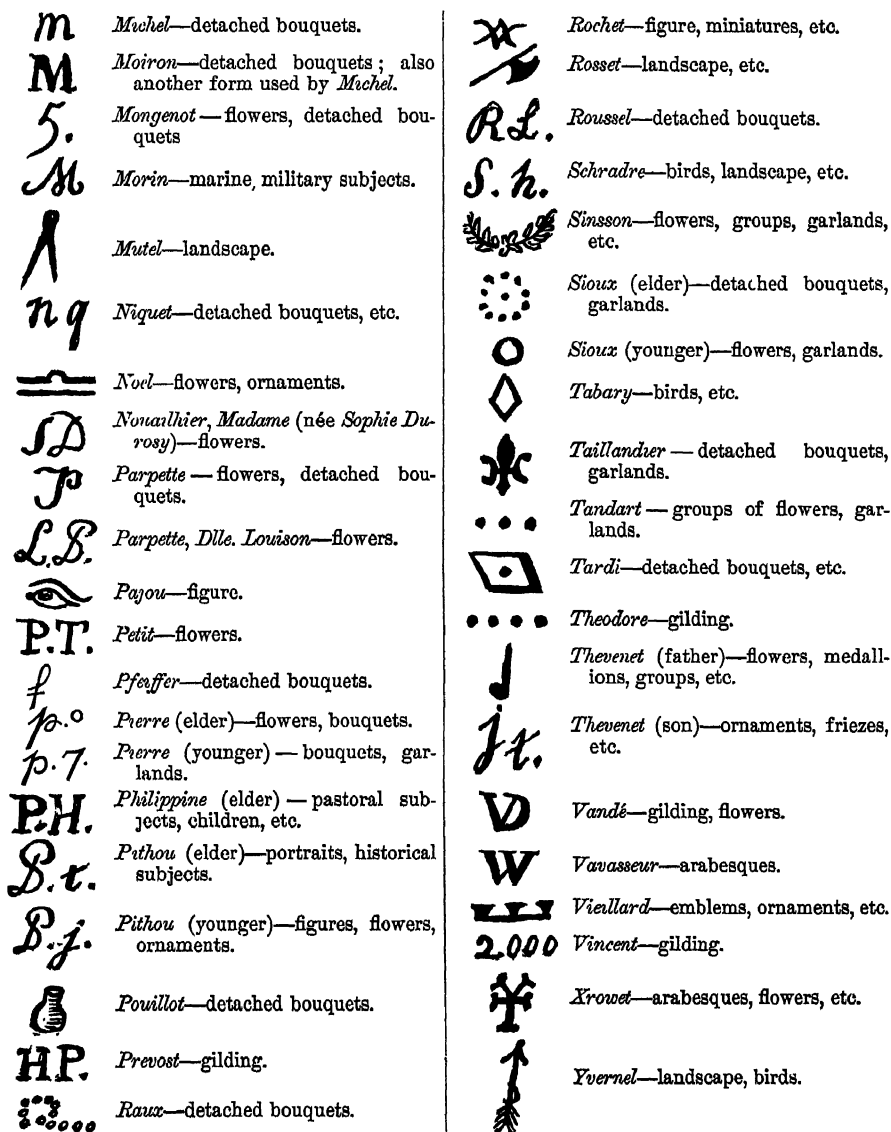 m Michel—detached bouquets.
M Moiron—detached bouquets; also
another form used by Michel.
5. Mongenot—flowers, detached bou-
quets
M Morin—marine, military subjects.
Mutel—landscape.
n q Niquet—detached bouquets, etc.
Noel—flowers, ornaments.
SD Nouailhier, Madame (née Sophie Du-
rosy)—flowers.
P Parpette—flowers, detached bou-
quets.
L.B. Parpette, Dlle. Louison—flowers.
Pajou—figure.
P.T. Petit—flowers.
f Pfeiffer—detached bouquets.
p.o Pierre (elder)—flowers, bouquets.
p.7. Pierre (younger)—bouquets, gar-
lands.
P.H. Philippine (elder)—pastoral sub-
jects, children, etc.
P.t. Pithou (elder)—portraits, historical
subjects.
P.j. Pithou (younger)—figures, flowers,
ornaments.
Pouillot—detached bouquets.
H.P. Prevost—gilding.
Raux—detached bouquets.
Rochet—figure, miniatures, etc.
Rosset—landscape, etc.
R L. Roussel—detached bouquets.
S.h. Schradre—birds, landscape, etc.
Sinsson—flowers, groups, garlands,
etc.
Sioux (elder)—detached bouquets,
garlands.
Sioux (younger)—flowers, garlands.
Tabary—birds, etc.
Taillandier—detached bouquets,
garlands.
Tandart—groups of flowers, gar-
lands.
Tardi—detached bouquets, etc.
Theodore—gilding.
Thevenet (father)—flowers, medall-
ions, groups, etc.
j.t. Thevenet (son)—ornaments, friezes,
etc.
VD Vandé—gilding, flowers.
W Vavasseur—arabesques.
Vieillard—emblems, ornaments, etc.
2.000 Vincent—gilding.
Xrowet—arabesques, flowers, etc.
Yvernel—landscape, birds.